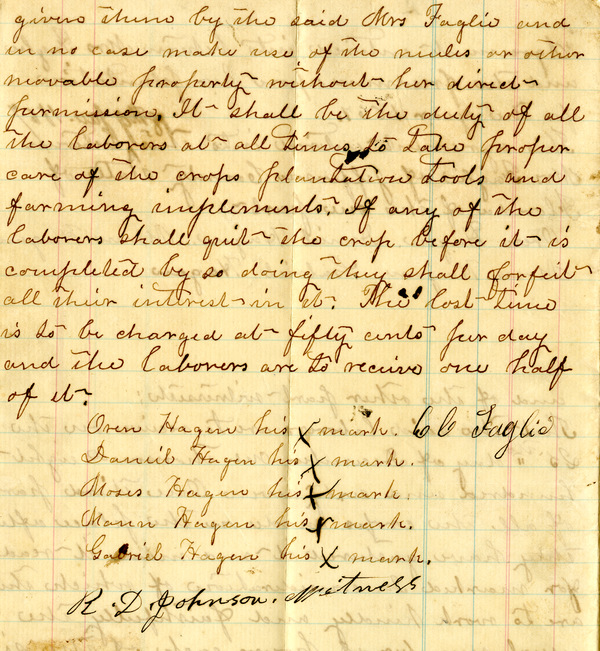 given them by the said Mrs Faglie and
in no case make use of the mules or other
movable property without her direct
permission. It shall be the duty of all
the laborers at all times to take proper
care of the crops plantation tools and
farming implements. If any of the
laborers shall quit the crop before it is
completed by so doing they shall forfeit
all their interest in it. The lost time
is to be charged at fifty cents per day
and the laborers are to receive one half
of it.
Oren Hagen his x mark. C C Faglie
Daniel Hagen his x mark.
Moses Hagen his x mark.
Mann Hagen his x mark.
Gabriel Hagen his x mark.
R. D. Johnson. Witness